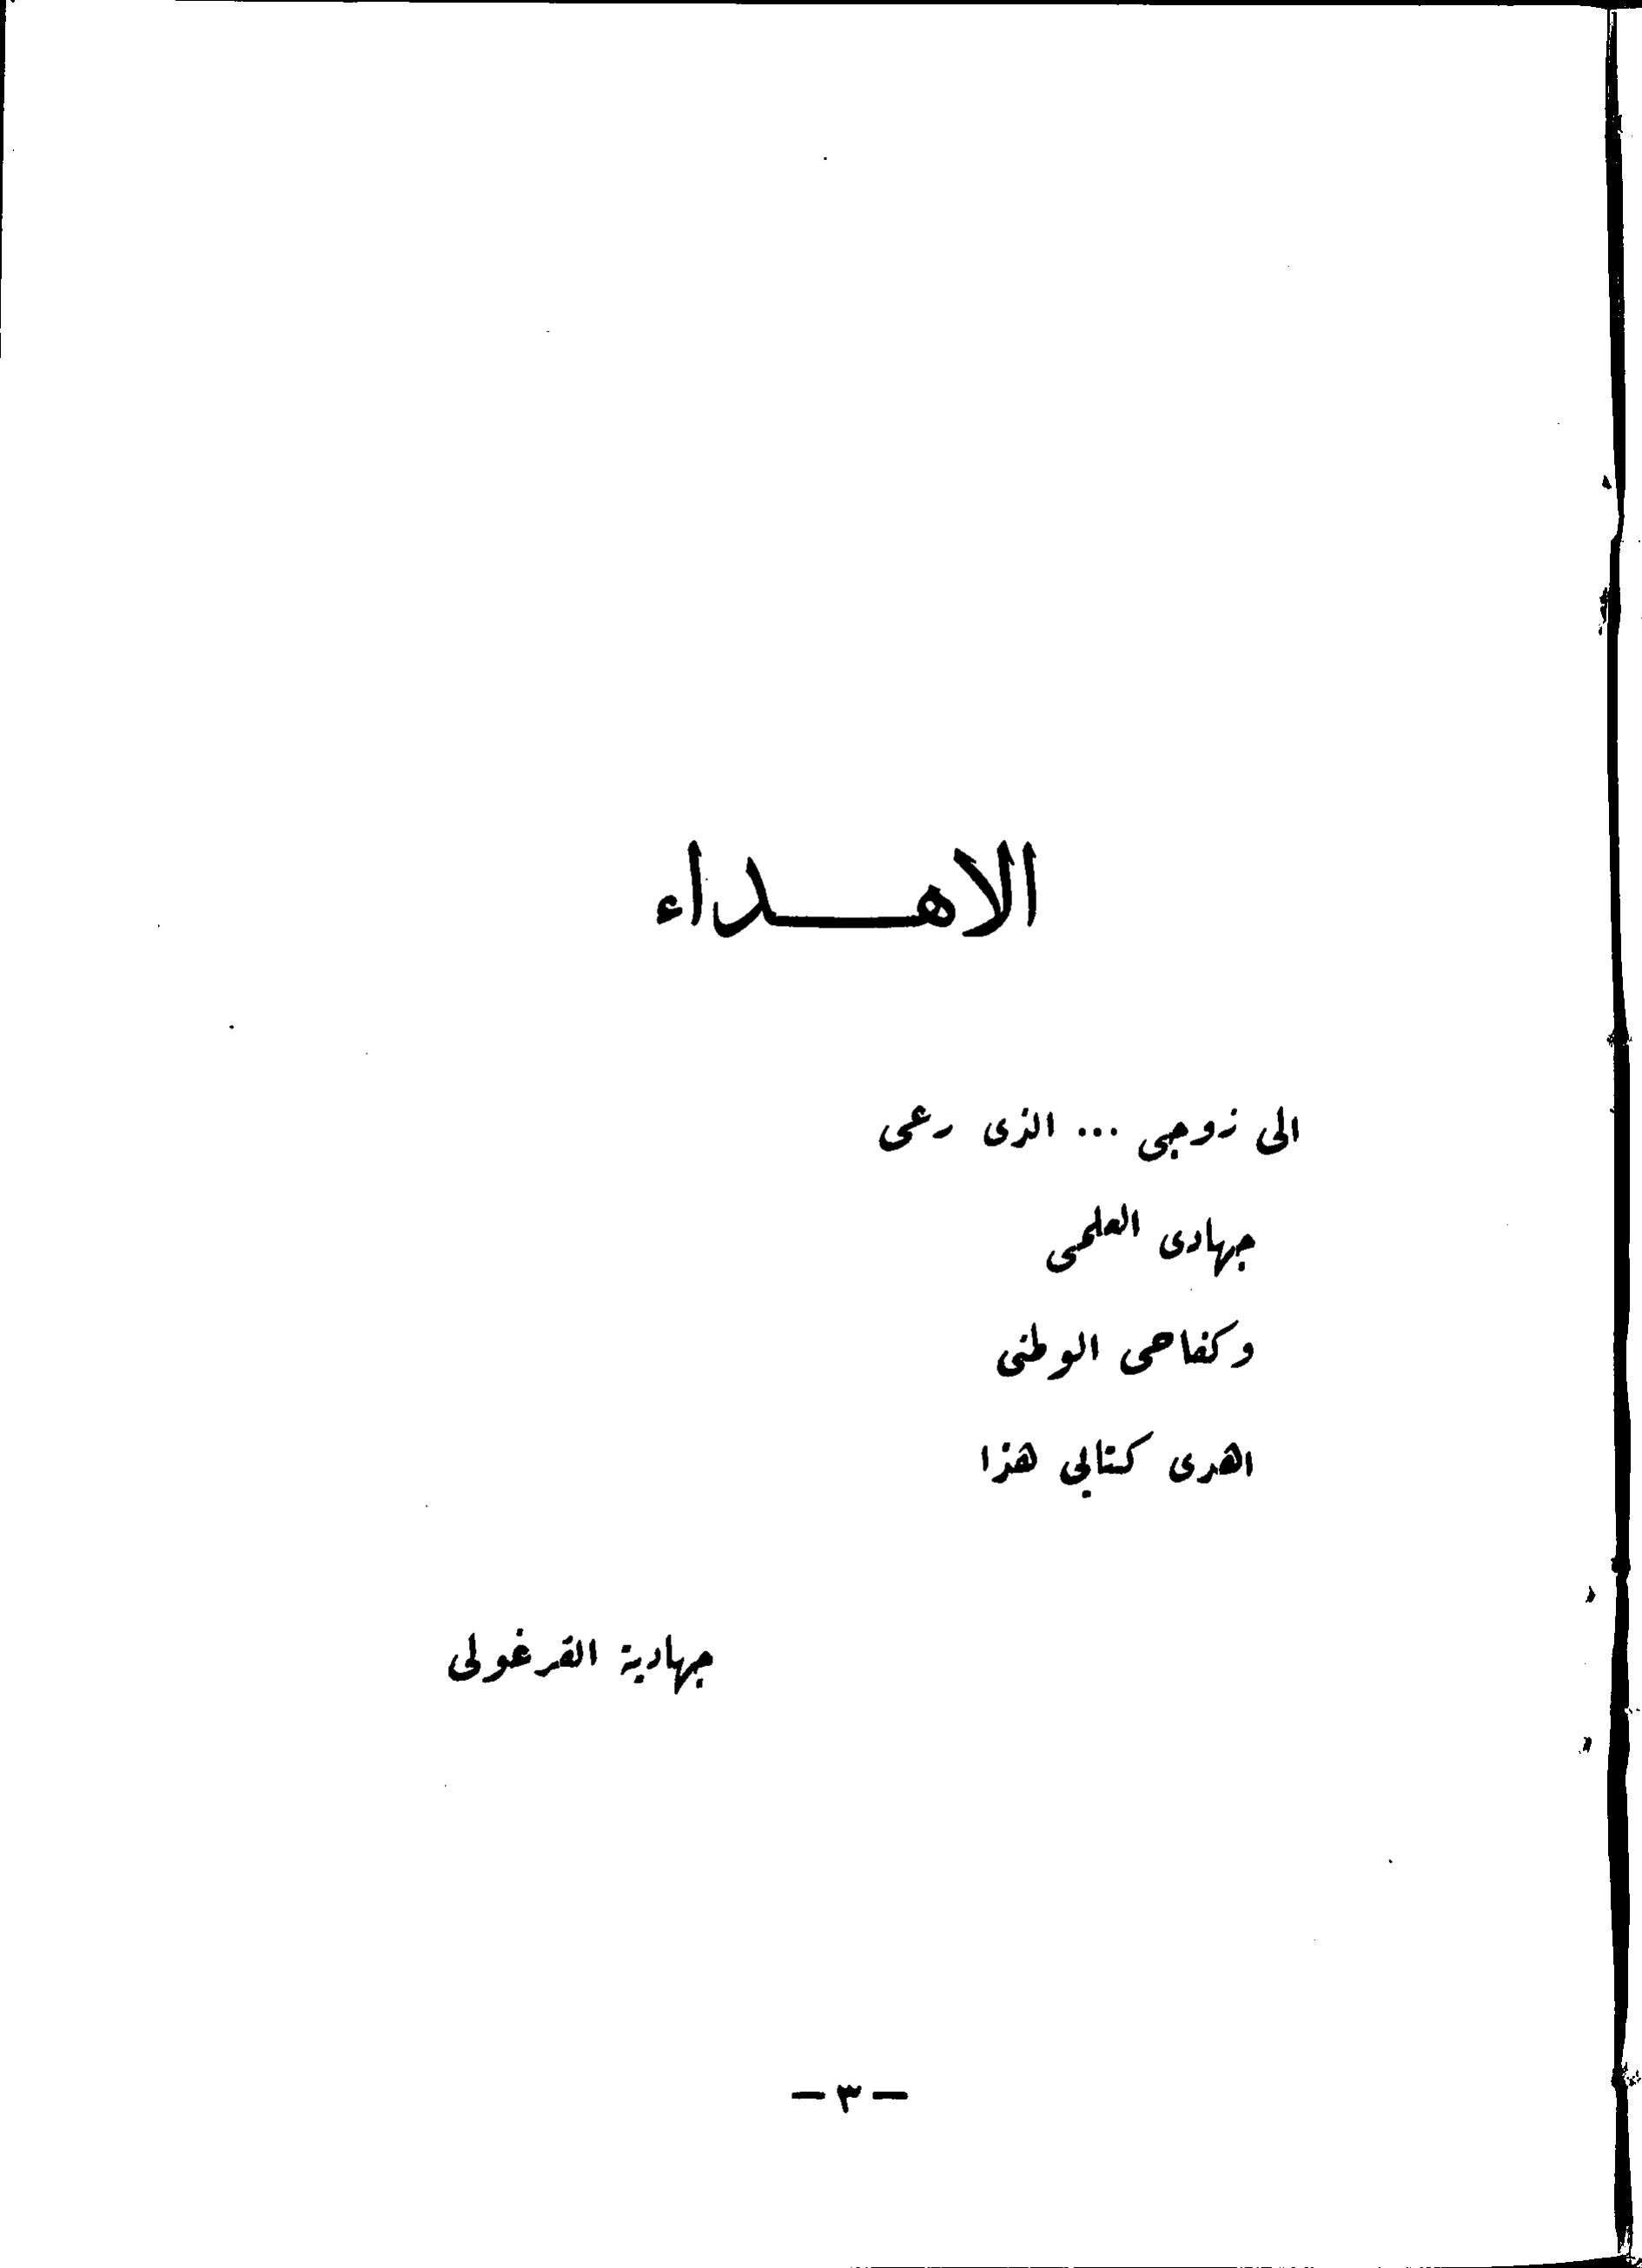 الاهـــداء
الى زوجى ... الذى رعى
جهادى العلمى
وكفاحى الوطنى
اهدى كتابى هذا
جهادية القرغولى
— ٣ —